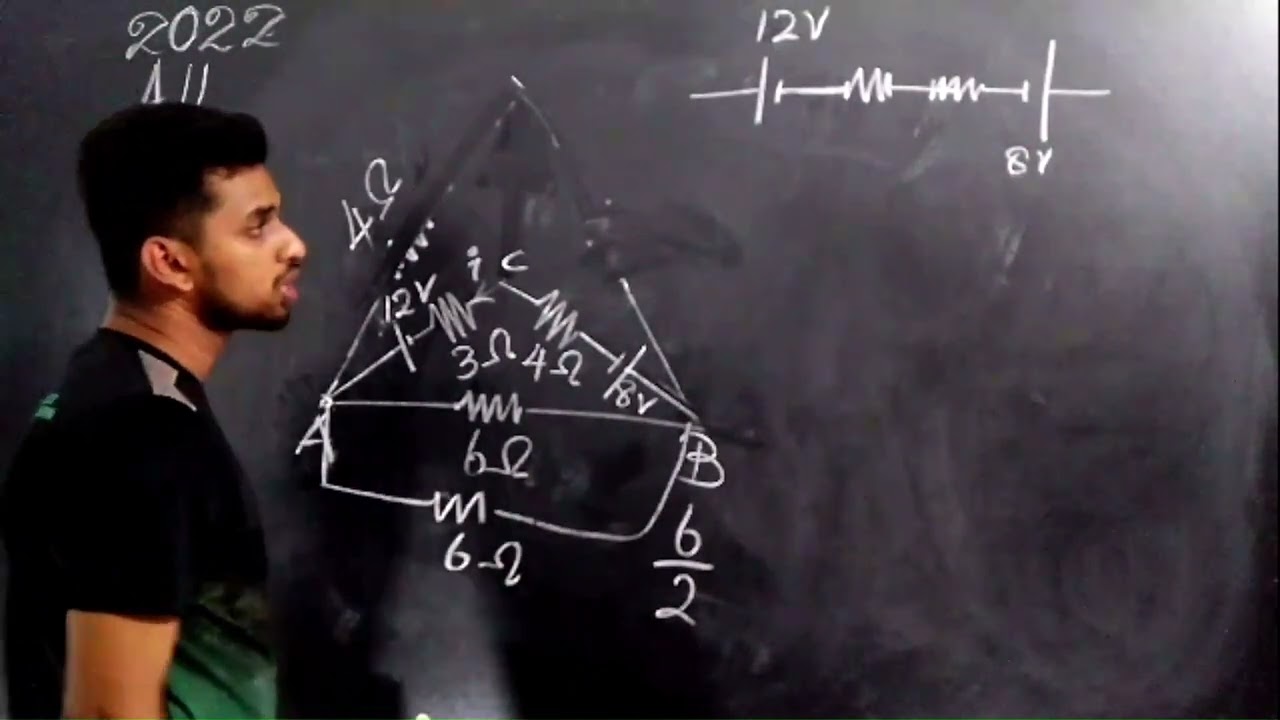 2022
12V
8V
4Ω
i C
12V
3Ω 4Ω
8V
A
6Ω
B
6Ω
6
2